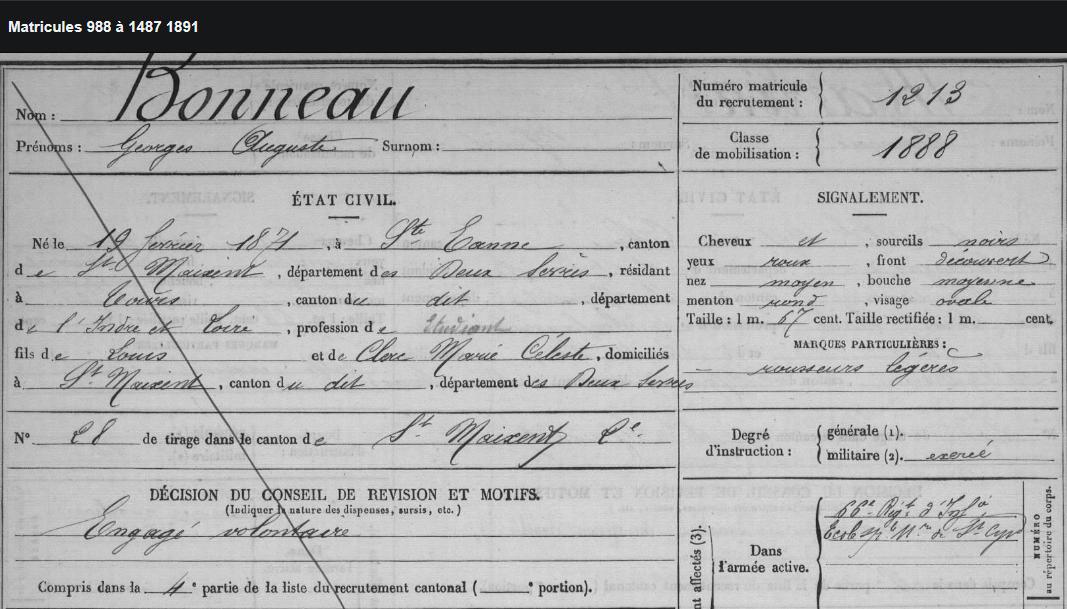 Matricules 988 à 1487 1891
Nom : Bonneau
Prénoms : Georges Auguste Surnom :
Numéro matricule
du recrutement : 1213
Classe
de mobilisation : 1888
ÉTAT CIVIL.
Né le 19 février 1871, à Ste Eanne, canton
de St Maixent, département des Deux Sèvres, résidant
à Tours, canton du dit, département
de l'Indre et Loire, profession de Etudiant
fils de Louis et de Clerc Marie Céleste, domiciliés
à St Maixent, canton du dit, département des Deux Sèvres
N° 28 de tirage dans le canton de St Maixent 2e.
SIGNALEMENT.
Cheveux et, sourcils noirs
yeux roux, front découvert
nez moyen, bouche moyenne
menton rond, visage ovale
Taille : 1 m. 67 cent. Taille rectifiée : 1 m. cent.
MARQUES PARTICULIÈRES :
rousseurs légères
Degré
d'instruction :
générale (1).
militaire (2). exercé
DÉCISION DU CONSEIL DE REVISION ET MOTIFS.
(Indiquer la nature des dispenses, sursis, etc.)
Engagé volontaire
Compris dans la 4e partie de la liste du recrutement cantonal ( e portion).
nt affectés (3).
Dans
l'armée active.
66e Régt d'Infie
Ecole sple Mre de St Cyr
NUMÉRO
au répertoire du corps.